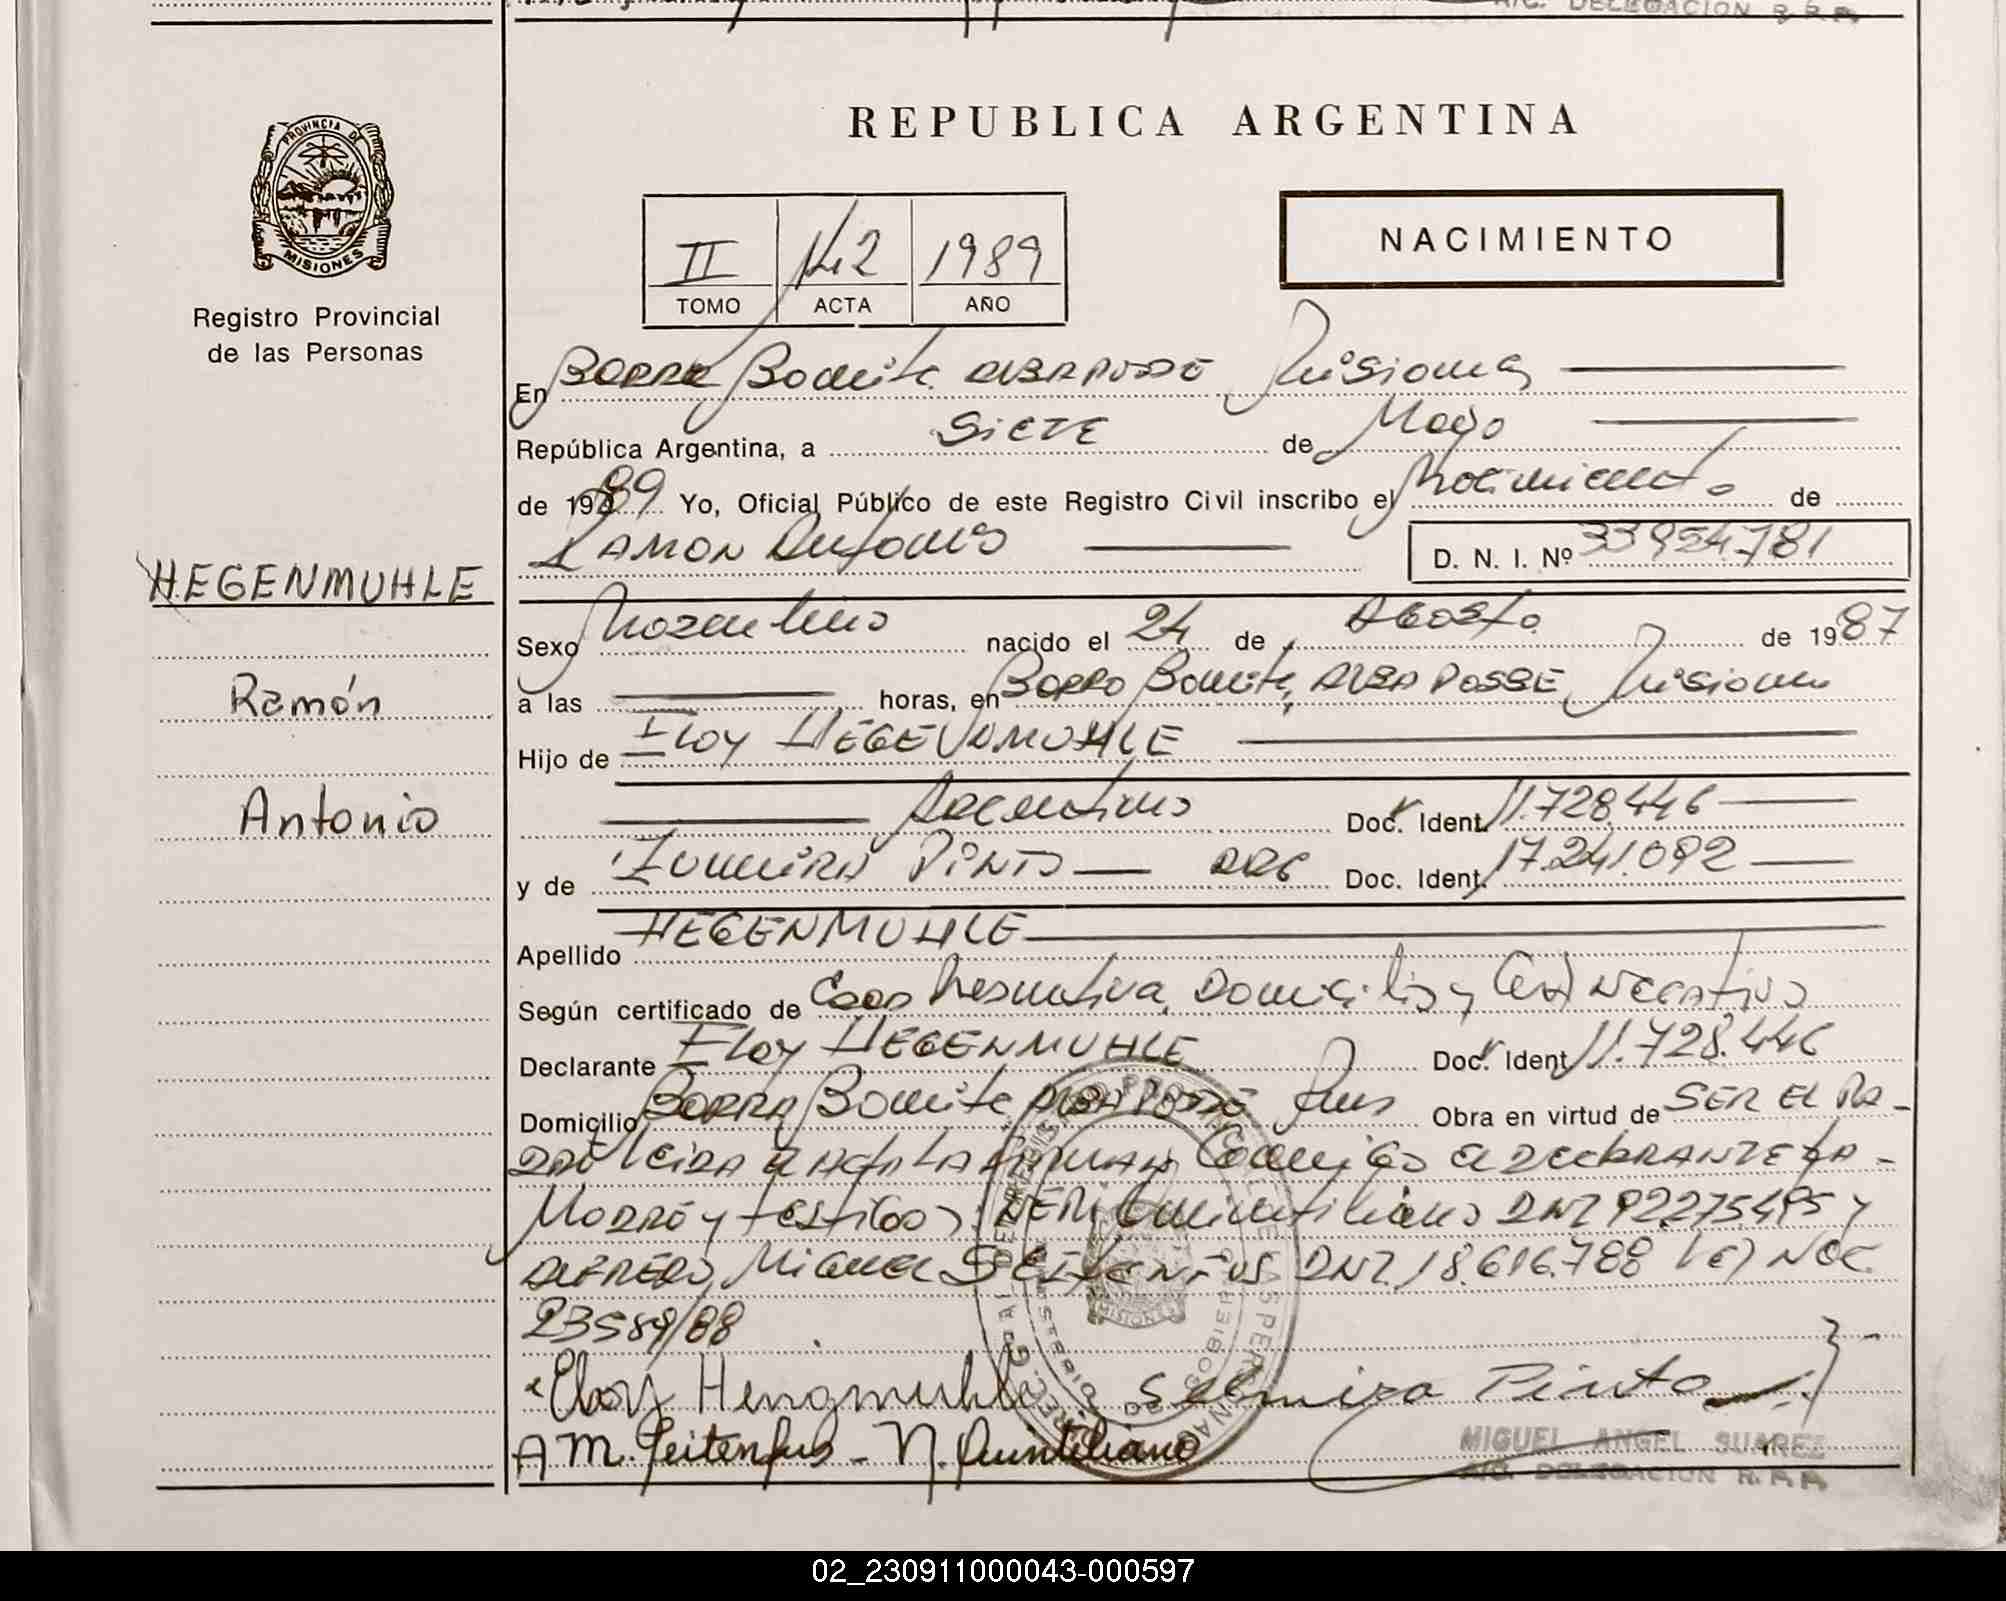 DELEGACION R.P.P.
PROVINCIA DE
MISIONES
Registro Provincial
de las Personas
HEGENMUHLE
Ramón
Antonio
REPUBLICA ARGENTINA
II 142 1989
TOMO ACTA AÑO
NACIMIENTO
En Barra Bonita ALBA POSSE Misiones
República Argentina, a SIETE de Mayo
de 1989 Yo, Oficial Público de este Registro Civil inscribo el Nacimiento de
RAMON Antonio D. N. I. Nº 33924781
Sexo Masculino nacido el 24 de AGOSTO de 1987
a las horas, en Barra Bonita, ALBA POSSE Misiones
Hijo de Eloy HEGENMUHLE
Argentino Doc. Ident. 11.728.446
y de PINTO ARG Doc. Ident. 17.241.092
Apellido HEGENMUHLE
Según certificado de Edad Presuntiva, Domicilio y Cert Negativo
Declarante Eloy HEGENMUHLE Doc. Ident 11.728.446
Domicilio Barra Bonita ALBA POSSE Mnes Obra en virtud de SER EL PA-
DRE Leida el Acta LA FIRMAN Conmigo el DECLARANTE LA
MADRE y testigos NERI Quintiliano DNI 92.275.495 y
ALFREDO Miguel SEITENFUS DNI. 18.616.788 NOC
23589/88
Eloy Hengmuhle Selmira Pinto
A M. Seitenfus - N. Quintiliano
MIGUEL ANGEL SUAREZ
A/C. DELEGACION R.P.P.
02_230911000043-000597